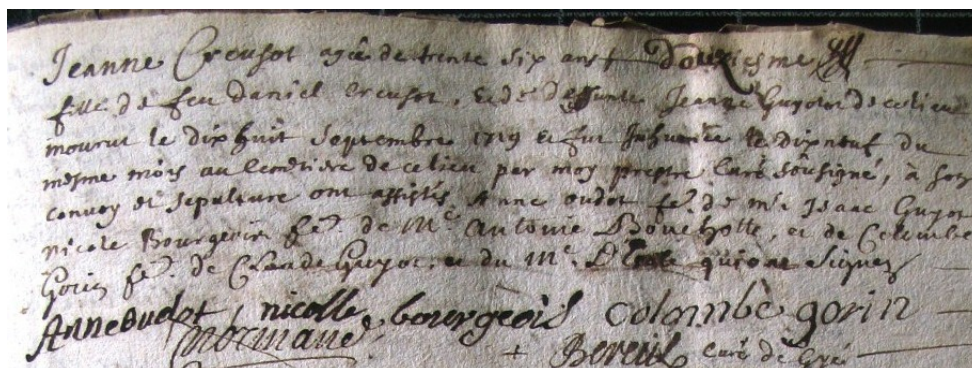 Jeanne Creusot agée de trente six ans Douziesme
fille de feu Daniel Creusot, & de Deffunte Jeanne Guyot de ce lieu
mourut le dix huit Septembre 1719 & fut Inhumée le dixneuf du
mesme mois au Cemetiere de ce lieu par moy prestre Curé sousigné, à son
convoy et sepulture ont assistés Anne oudot fe. de me Isaac Guyot
nicole Bourgeois fe. de Me. Antoine Bouchotte, et de Colombe
Gorin fe. de Claude Guyot, et du Me. D'Ecole qui ont Signez
Anne oudot nicolle bourgeois colombe gorin
Normand + Bereul Curé de